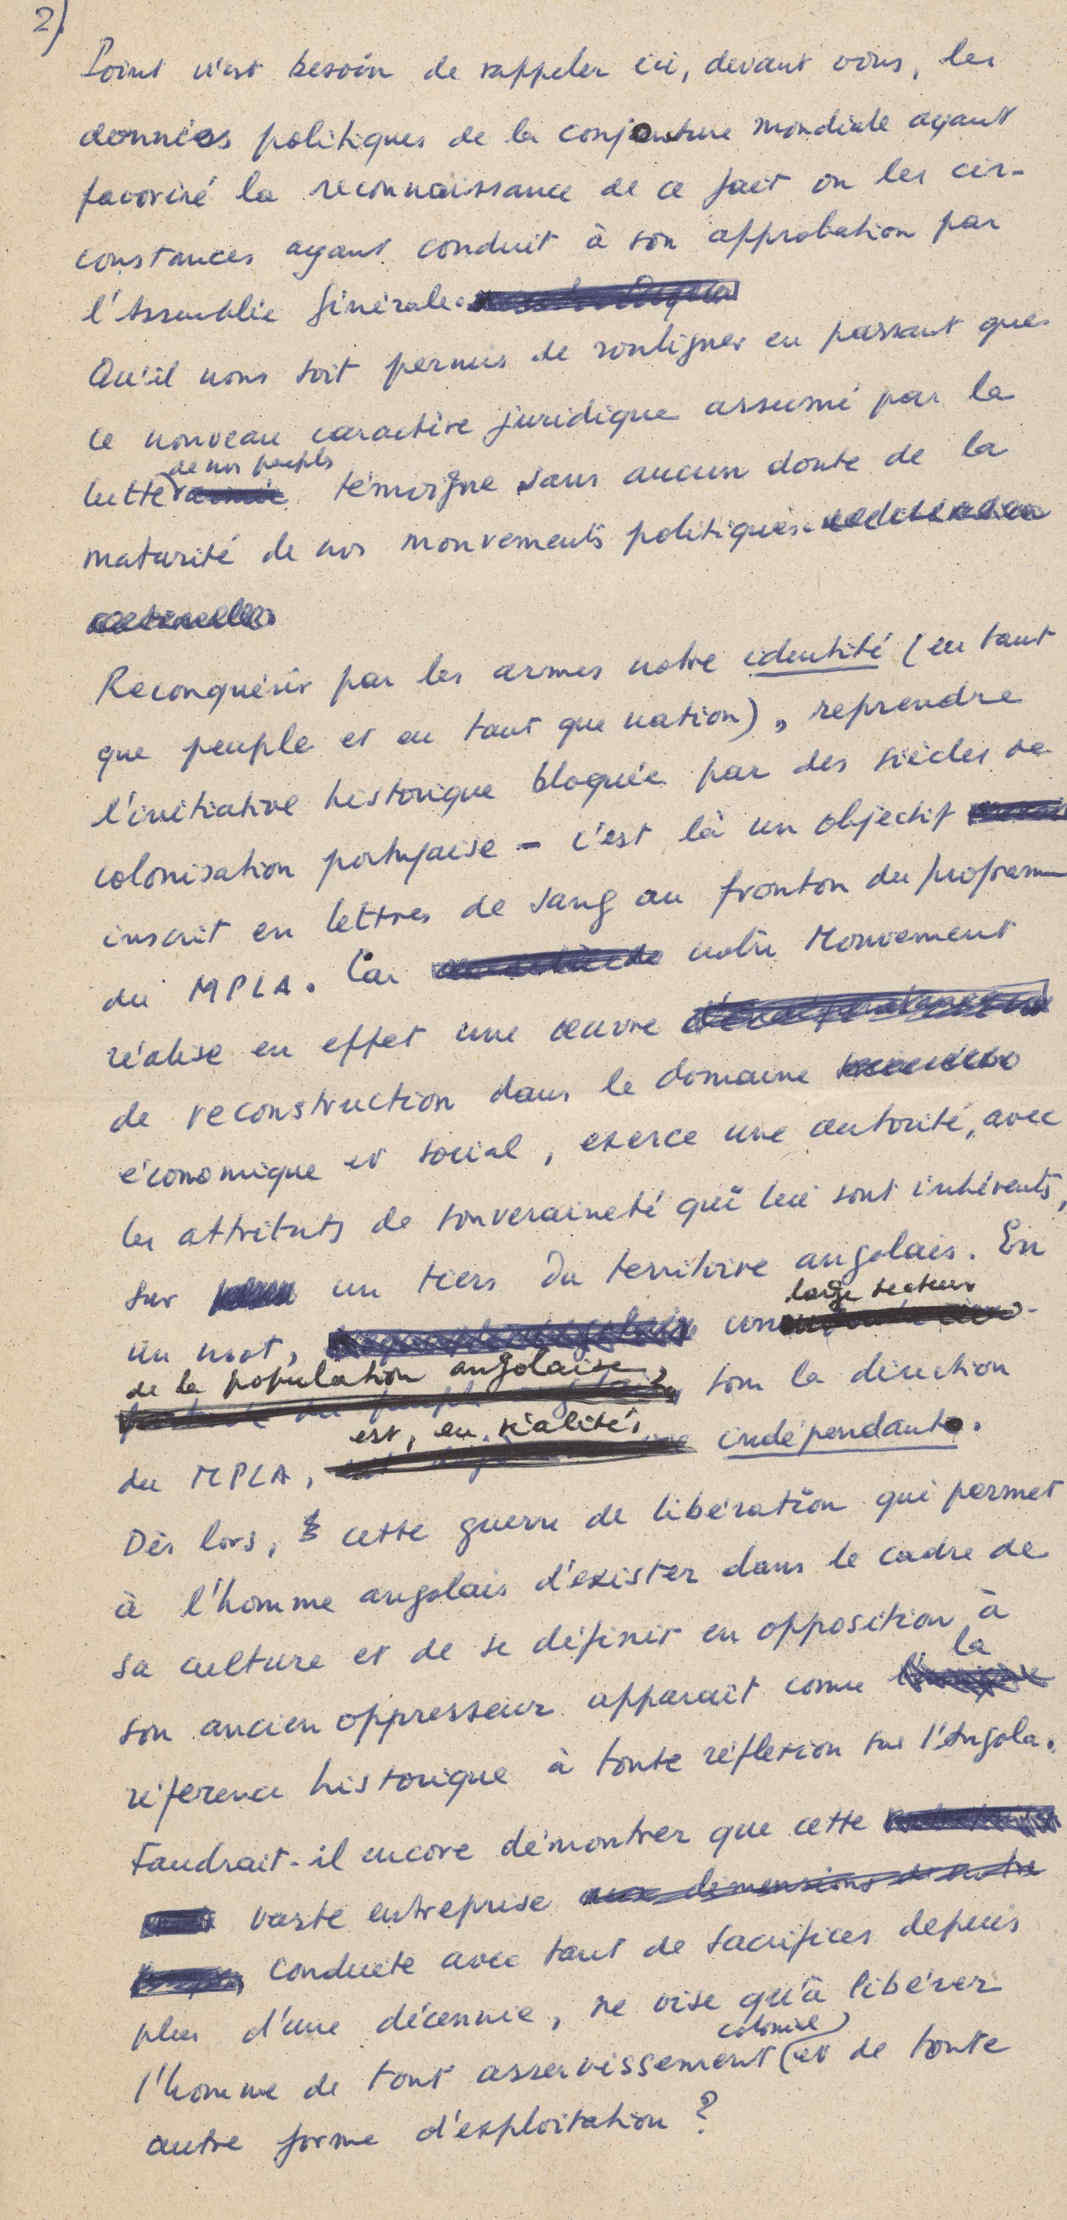 2).
Point n'est besoin de rappeler ici, devant vous, les
données politiques de la conjoncture mondiale ayant
favorisé la reconnaissance de ce fait ou les cir-
constances ayant conduit à son approbation par
l'Assemblée Générale.
Qu'il nous soit permis de souligner en passant que
ce nouveau caractère juridique assumé par la
de nos peuples
lutte armée témoigne sans aucun doute de la
maturité de nos mouvements politiques.
Reconquérir par les armes notre identité (en tant
que peuple et en tant que nation), reprendre
l'initiative historique bloquée par des siècles de
colonisation portugaise - c'est là un objectif
inscrit en lettres de sang au fronton du programme
du MPLA. Car notre Mouvement
réalise en effet une œuvre
de reconstruction dans le domaine
économique et social, exerce une autorité, avec
les attributs de souveraineté qui lui sont inhérents,
sur un tiers du territoire angolais. En
large secteur
un mot, un
de la population angolaise,
sous la direction
est, en réalité,
du MPLA, indépendant.
Dès lors, cette guerre de libération qui permet
à l'homme angolais d'exister dans le cadre de
sa culture et de se définir en opposition à
la
son ancien oppresseur apparait comme
référence historique à toute réflexion sur l'Angola.
Faudrait-il encore démontrer que cette
vaste entreprise aux dimensions de notre
conduite avec tant de sacrifices depuis
plus d'une décennie, ne vise qu'à libérer
colonial
l'homme de tout asservissement (et de toute
autre forme d'exploitation ?